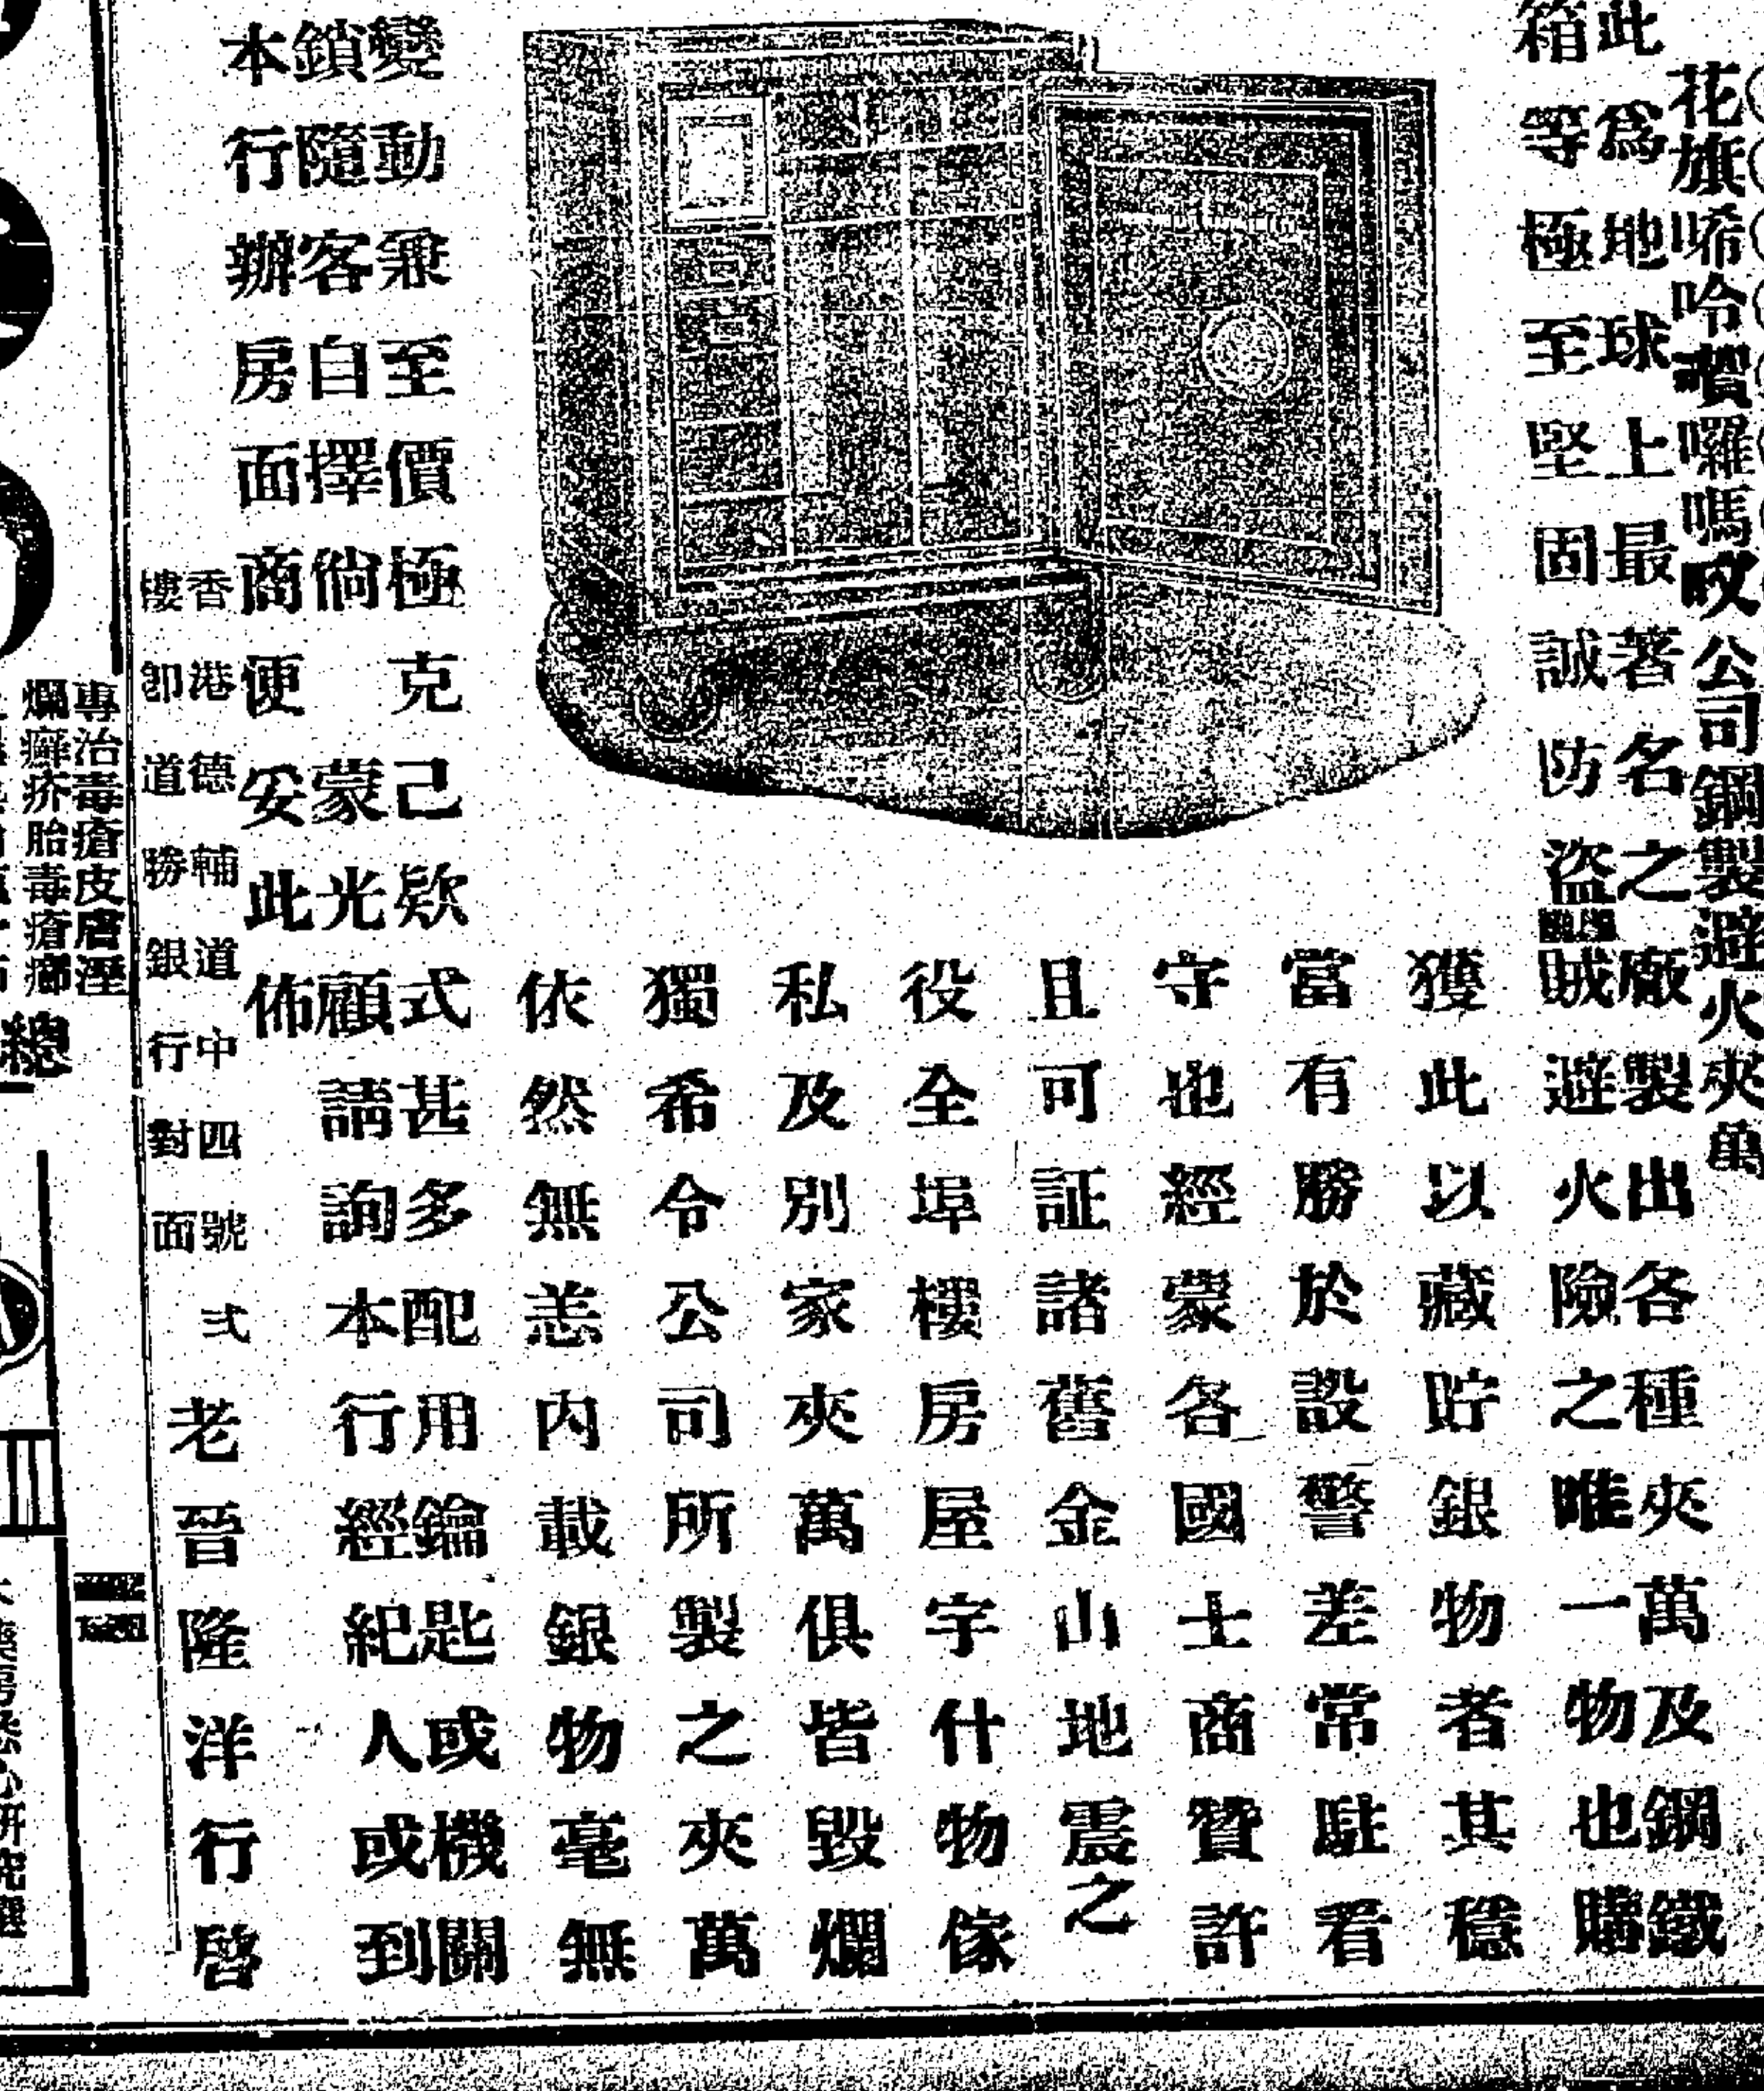 花旗唏哈賈囉嗎㕤公司鋼製避火夾萬
此為地球上最著名之廠製出各種夾萬及鋼鐵
箱等極至堅固誠防盜賊避火險之唯一物也購
獲此以藏貯銀物者其穩
當有勝於設警差常駐看
守也經蒙各國士商贊許
且可証諸舊金山地震之
役全埠樓房屋宇什物傢
私及別家夾萬俱皆毀爛
獨希令公司所製之夾萬
依然無恙內載銀物毫無
變動兼至價極克己欵式甚多配用鑰匙或機關
鎖隨客自擇倘蒙光顧請詢本行經紀人或到
本行辦房面商便妥此佈
香港德輔道中四號弍
樓即道勝銀行對面
老晉隆洋行啓
專治毒瘡皮膚溼
爛癬疥胎毒瘡癤
總